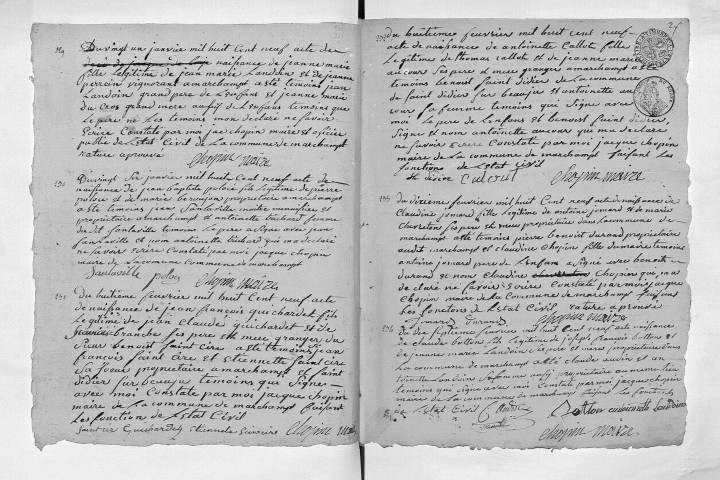 Du vingt un janvier mil huit Cent neuf acte de
naissance de jeanne marie
fille Legitime de jean marie Landoin et de jeanne
perrein vigneront a marchampt a été temoins jean
Landoin grand pere de L'enfant et jeanne marie
du Cros grand mere aussi de L'enfans temoins que
Le pere ne Les temoins mon declaré ne savoir
Ecrire Constaté par moi jac chopin maire et officier
public de L'etat Civil de La commune de marchampt
rature aprouvé
chopin maire
130
Du vingt Six janvier mil huit Cent neuf acte de
naissance de jean baptiste poloce fils Legitime de pierre
poloce et de marie propriétaire a marchampt
a été temoins jean Santaville maitre menuisier et
propriétaire a marchampt et antoinette trichard femme
du dit Santaville temoins Le pere a signé avec jean
Santaville et non antoinette trichard qui ma declaré
ne savoir Ecrire Constaté par moi jacques chopin
maire de La commune de marchampt
Santaville chopin maire
131
Du huitieme fevrier mil huit Cent neuf acte
de naissance de jean françois guichardet fils
Legitime de jean Claude guichardet et de
branche Ses pere et mere granger du
Sieur benoist Saint Cire a été temoins jean
françois Saint Cire et Etiennette Saint Cire
Sa Soeur propriétaire a marchampt et Saint
didier Sur beaujeu temoins qui Signe
avec moi Constaté par moi jacque chopin
maire de La commune de marchampt faisant
Les fonction de L'etat Civil
Saint cir Guichardet Etiennete chopin maire
25
Du huitieme fevrier mil huit Cent neuf
acte de naissance de antoinette Callot fille
Legitime de thomas Callot et de jeanne marie
au cours Ses pere et mere granger a marchampt a été
temoins benoist Saint didier de La commune
de Saint didier Sur beaujeu et antoinette au
cour Sa femme temoins qui Signe avec
moi Le pere de L'enfans et benoist Saint didier
Signe et nom antoinette au cour qui ma declaré
ne savoir Ecrire Constaté par moi jacque chopin
maire de La commune de marchampt faisant Les
fonctions de L'etat Civil
chopin maire
Du dixieme fevrier mil huit Cent neuf acte de naissance de
Claudine jomard fille Legitime de antoine jomard et de marie
chevreton Ses pere et mere propriétaire dans La commune de
marchampt a été temoins pierre benoist durand propriétaire
audit marchampt et claudine chopin fille du maire temoins
antoine jomard pere de L'enfant a signé avec benoist
durand et nom Claudine chopin qui mas
declaré ne savoir Ecrire Constaté par moi jacque
Chopin maire de La Commune de marchampt faisant
Les fonctions de L'etat Civil rature aprouvé
jomard Durand chopin maire
Du dix Septieme fevrier mil huit Cent neuf acte de naissance
de claude botton fils Legitime de joseph françois botton et
de jeanne marie Landoin Ses pere et mere propriétaire dans
La commune de marchampt a été claude audin et an
toinette Landoin propriétaire au meme lieu
temoins qui Signe avec moi Constaté par moi jacque chopin
maire de La commune de marchampt faisant Les fonctions
de L'etat Civil
Botton antoinette Landoin
chopin maire